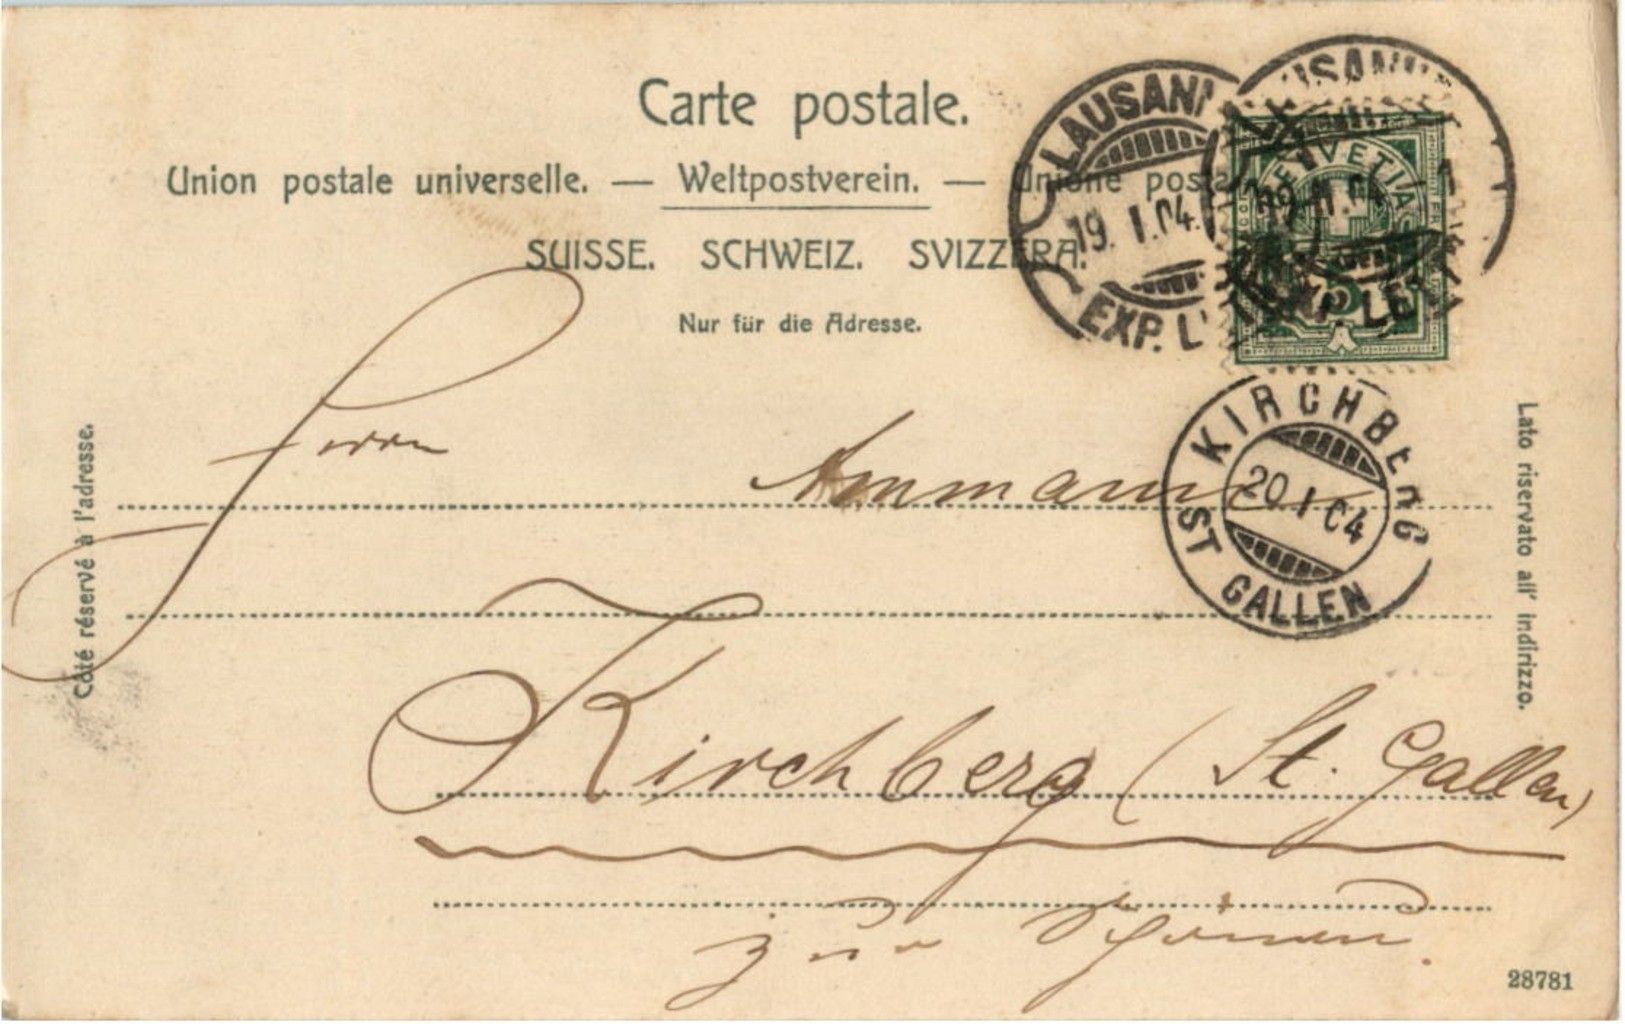 Carte postale.
Union postale universelle. — Weltpostverein. — Unione posta
SUISSE. SCHWEIZ. SVIZZERA.
Nur für die Adresse.
LAUSANN
19. I. 04.
EXP. L
USANN
19. I. 04
EXP. LET
HELVETIA
5
KIRCHBERG
20 I 04
ST GALLEN
Côté réservé à l'adresse.
Lato riservato all' indirizzo.
Herrn Ammann
Kirchberg (St. Gallen)
zur
28781